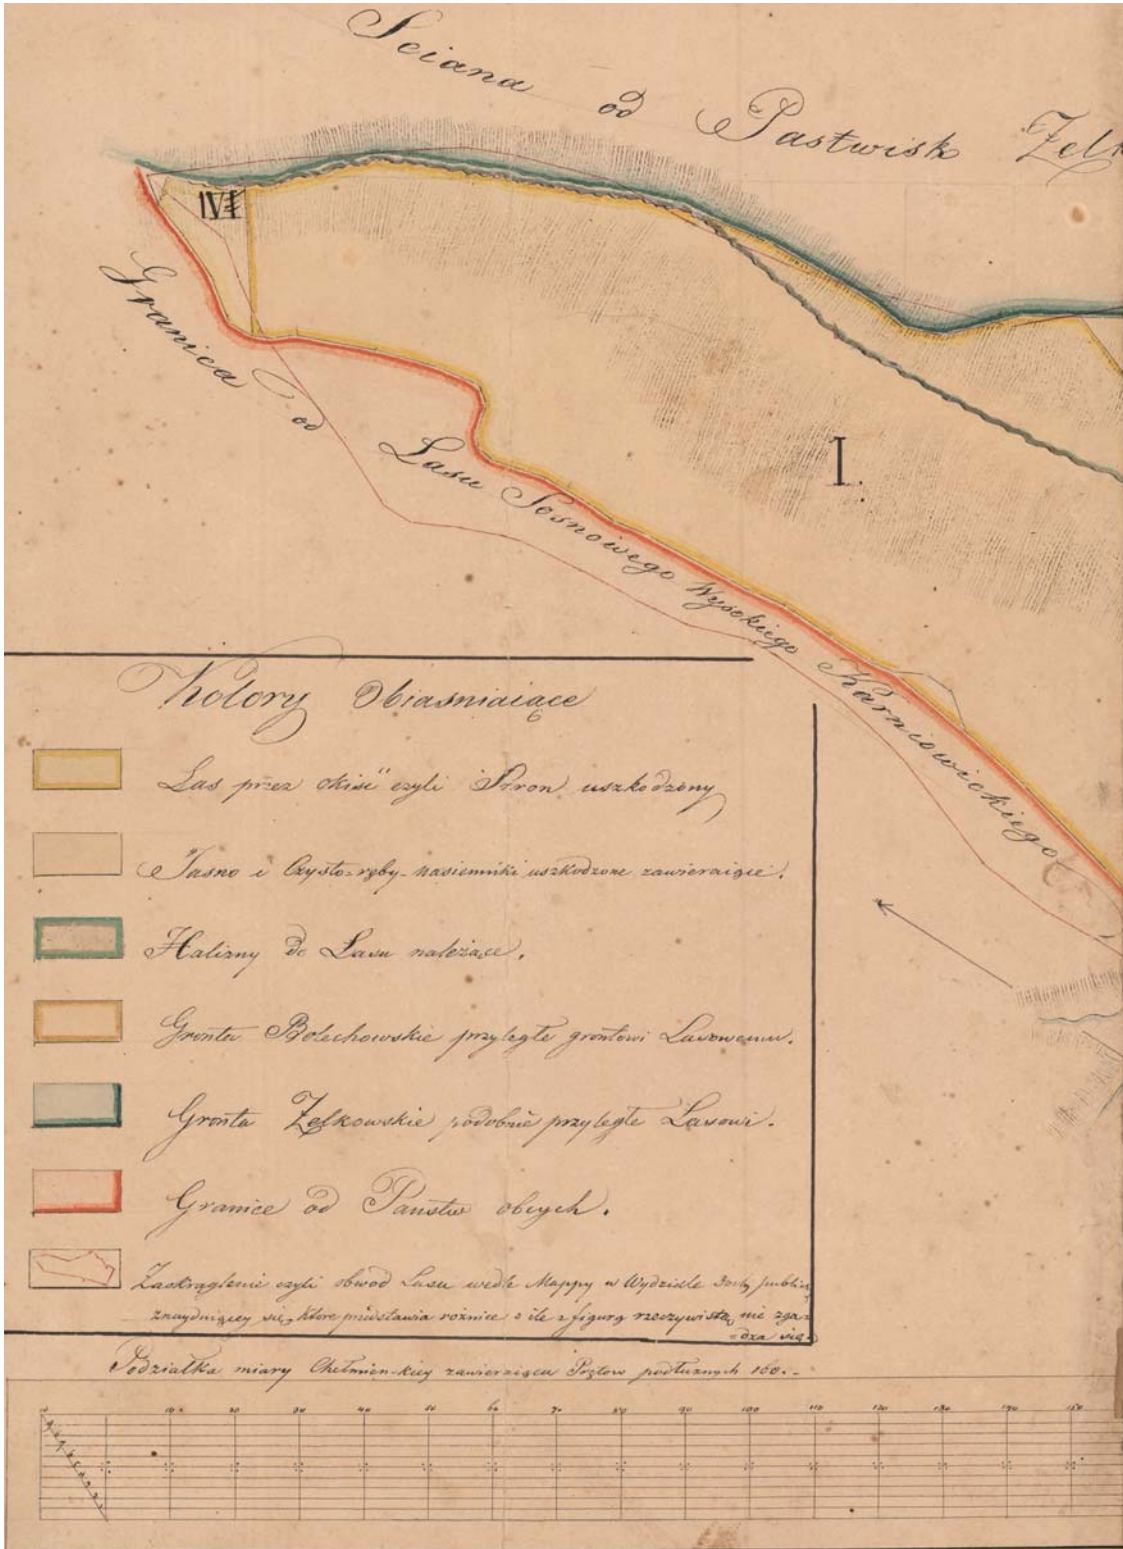 Sciana od Pastwisk Zelk
IVI
Granica od Lasu Sosnowego Wysokiego Karniowickiego
I.
Kolory Obiasniaiące
Las przez okiść czyli Szron uszkodzony
Jasno i Czysto=ręby-nasienniki uszkodzone zawieraiące.
Halizny do Lasu należące.
Gronta Bolechowskie przyległe grontowi Lasowemu.
Gronta Zelkowskie podobnie przyległe Lasowi.
Granice od Panstw obcych.
Zaokrąglenie czyli obwod Lasu wedle Mappy w Wydziale
znayduiącey się, które przedstawia roźnice o ile z figurą rzeczywistą nie zga=
=dza się.
Podziałka miary Chełmien-kiey zawieraiąca Prętow podłuznych 160.-
10 10 20 30 40 50 60 70 80 90 100 110 120 130 140 150